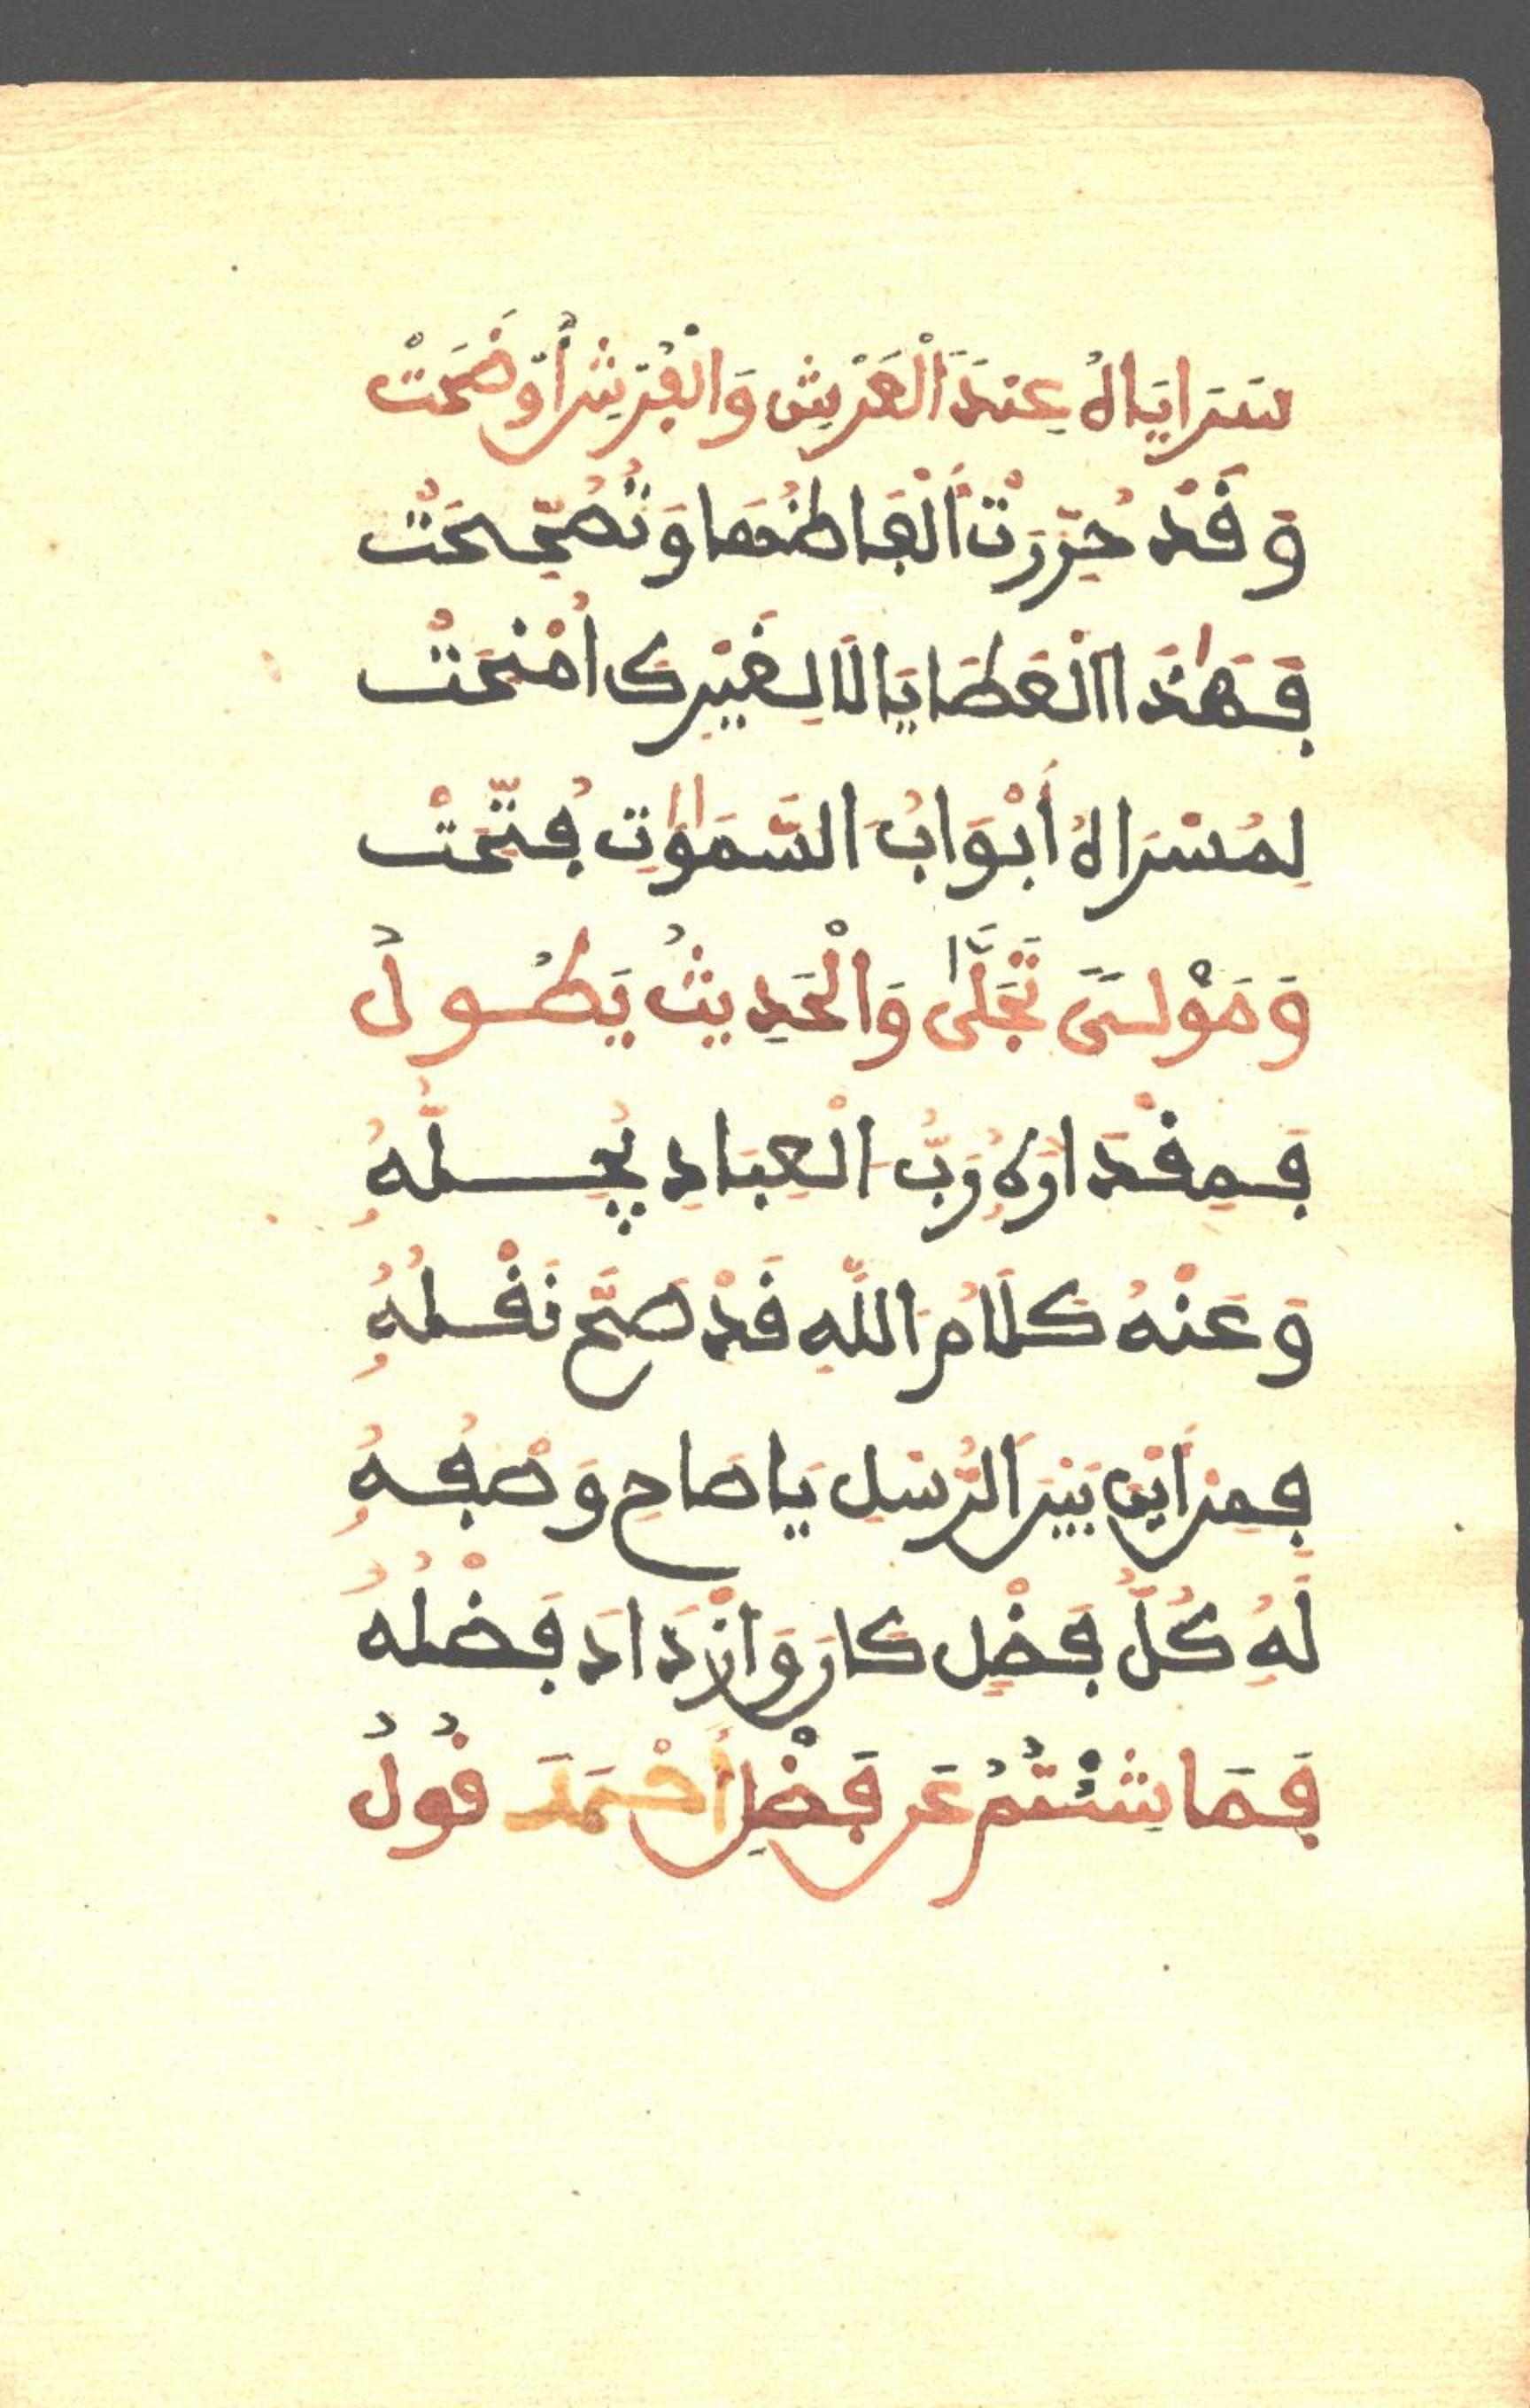 سَرَايَاهُ عِنْدَ الْعَرْشِ وَالْفُرْشِ أَوْضَحَتْ
وَقَدْ حُرِّرَتْ أَلْفَاظُهَا وَتُصُحِّحَتْ
فَهَٰذَا الْعَطَايَا لَا لِغَيْرِكَ أُمْنِحَتْ
لِمَسْرَاهُ أَبْوَابُ السَّمَٰوَٰتِ فُتِّحَتْ
وَمَوْلَىٰ تَجَلَّىٰ وَالْحَدِيثُ يَطُولُ
فَمِقْدَارُهُ رَبُّ الْعِبَادِ يُجِلُّهُ
وَعَنْهُ كَلَامُ اللَّهِ قَدْ صَحَّ نَقْلُهُ
فَمِنْ أَيْنَ بَيْنَ الرُّسْلِ يَا صَاحِ وَصْفُهُ
لَهُ كُلُّ فَضْلٍ كَانَ وَازْدَادَ فَضْلُهُ
فَمَا شِئْتُمُ عَنْ فَضْلِ أَحْمَدَ قُولُ